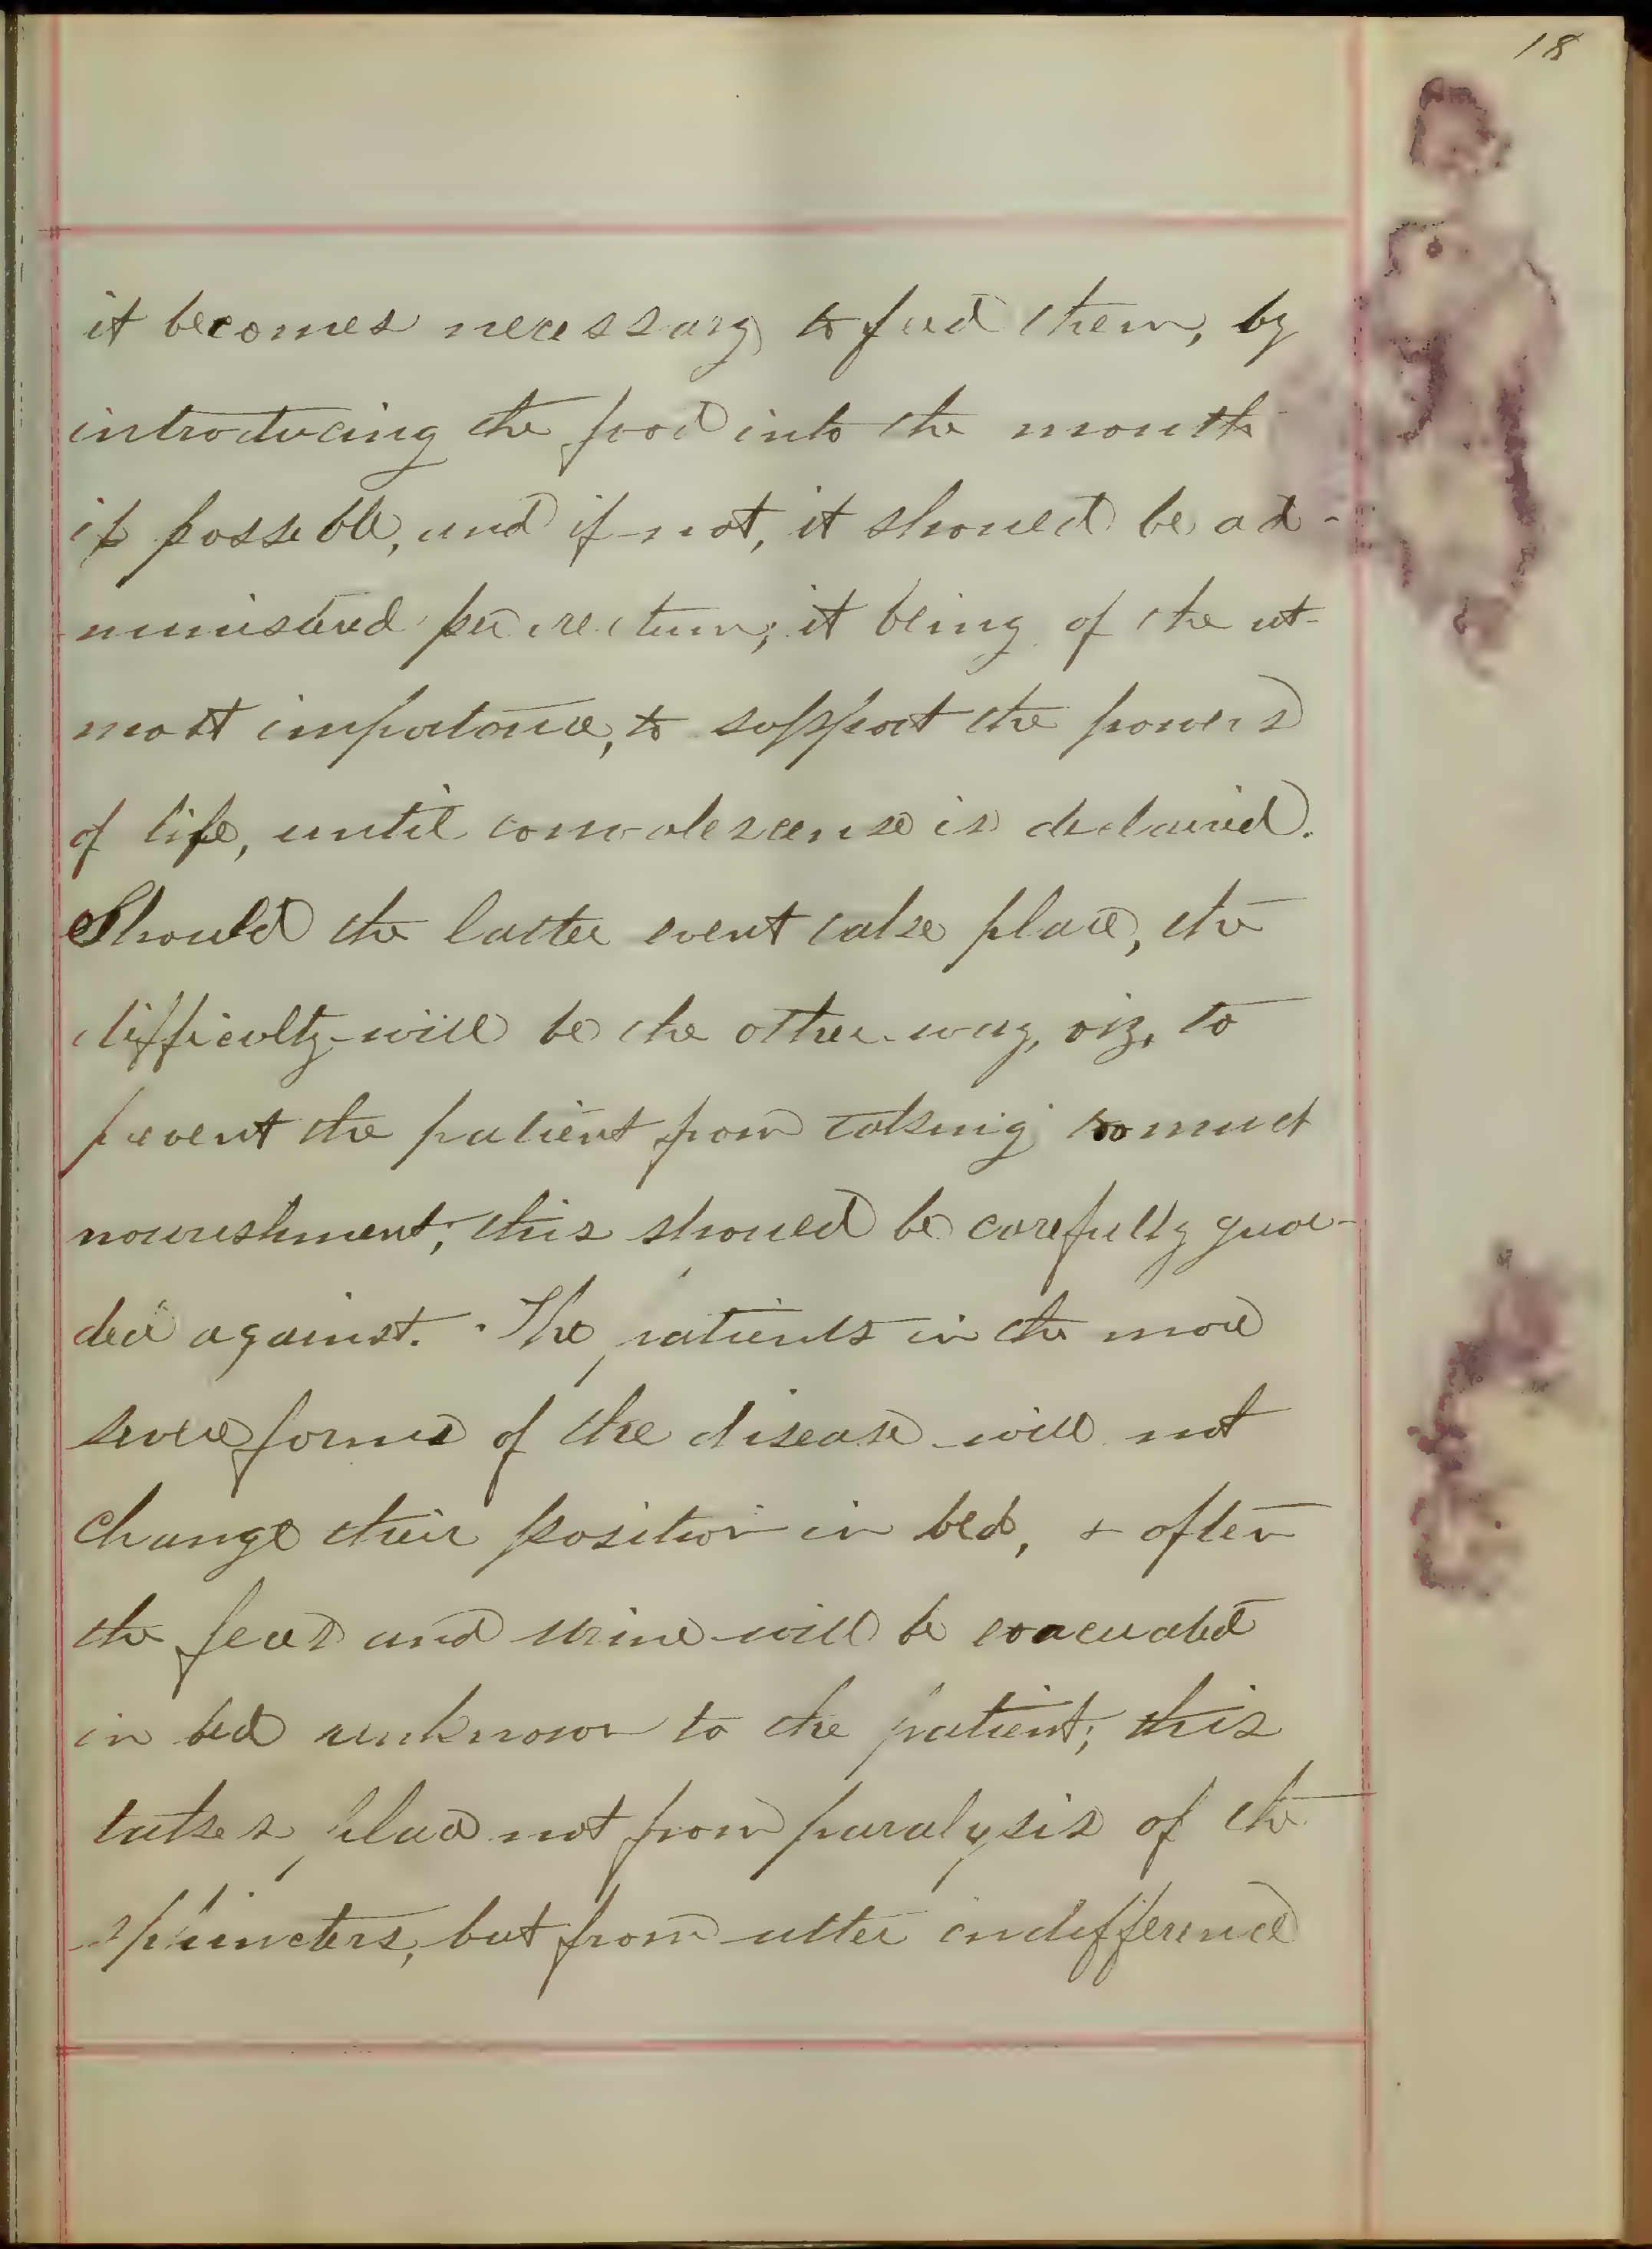 18
it becomes necessary to feed them, by
introducing the food into the mouth
if possible, and if not, it should be ad-
ministered per rectum; it being of the ut-
most importance, to support the powers
of life, until convalescense is declaired.
Should the latter event take place, the
difficulty will be the other way, viz, to
prevent the patient from taking too much
nourishment; this should be carefully guar-
ded against. The patients in the more
severe forms of the disease will not
change their position in bed, + often
the feces and urine will be evacuated
in bed unknown to the patient; this
takes place not from paralysis of the
sphincters, but from utter indifference